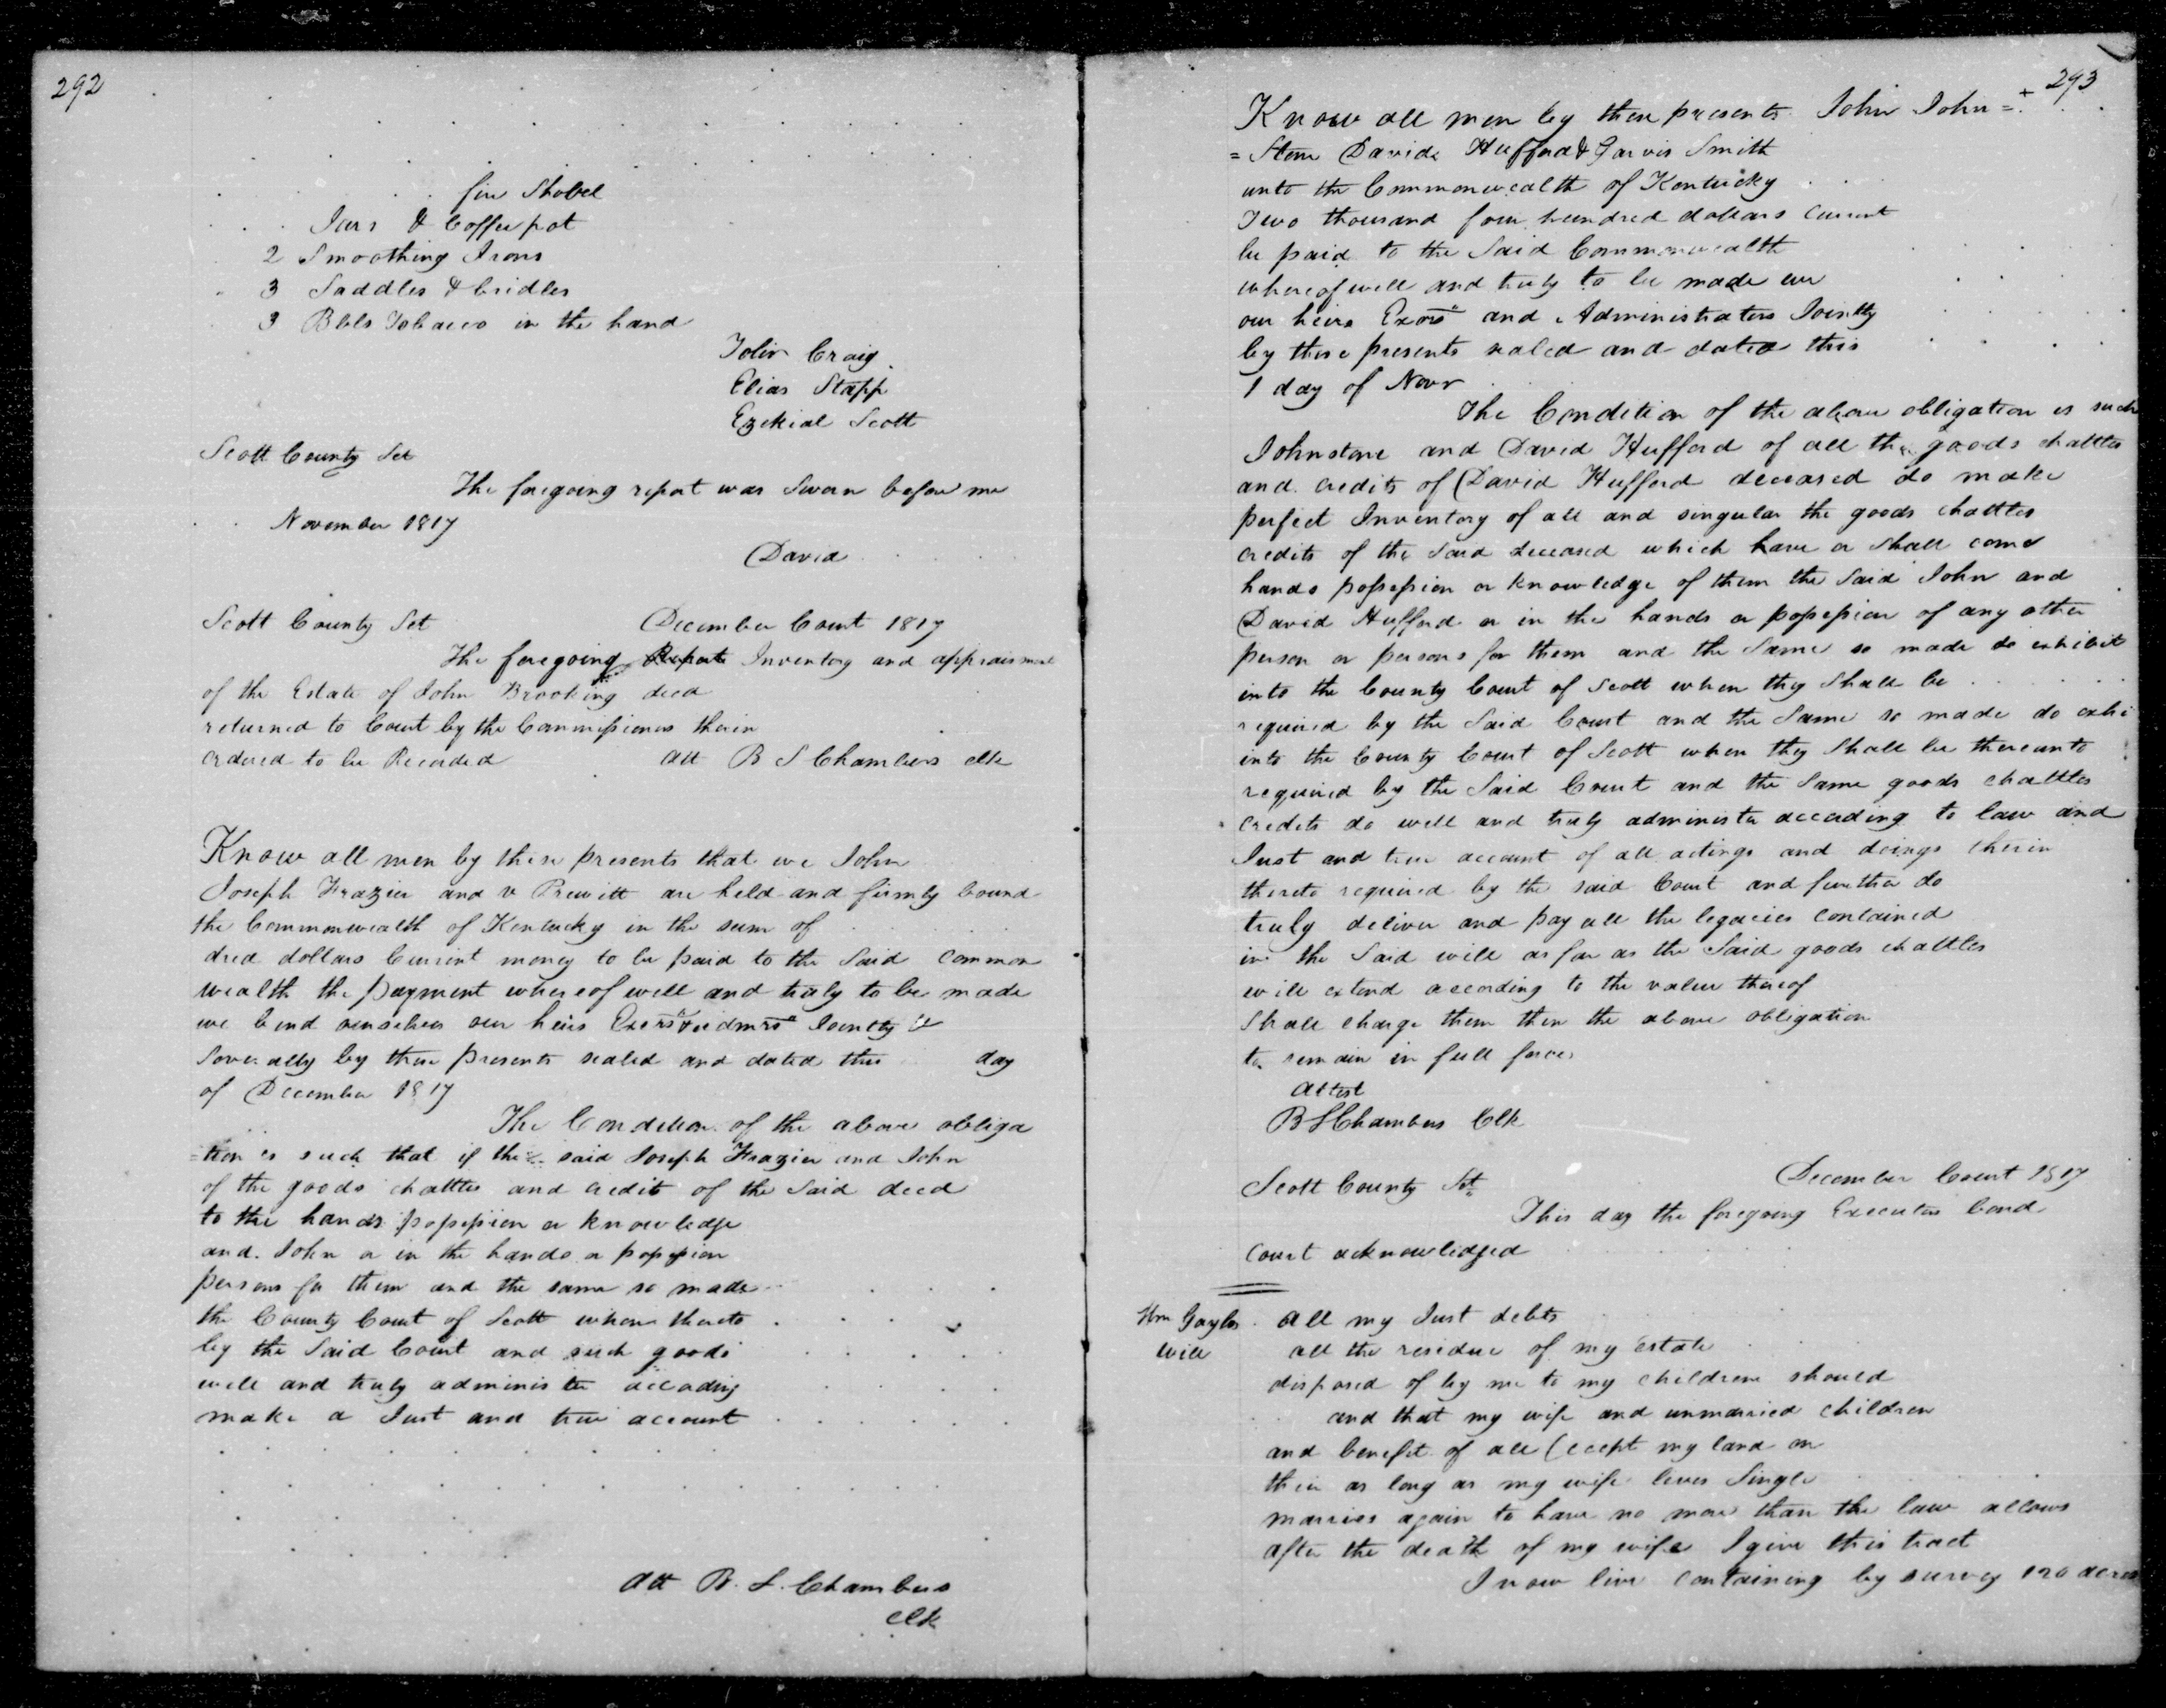 292
fire Shovel
Jars & Coffee pot
2 Smoothing Irons
3 Saddles & bridles
3 Bbls Tobacco in the hand
John Craig
Elias Stapp
Ezekial Scott
Scott County Sct
The foregoing report was Sworn before me
November 1817
David
Scott County Sct December Court 1817
The foregoing Report Inventory and appraisment
of the Estate of John Brooking decd
returned to Court by the Commissioners therin
ordered to be Recorded Att B S Chambers clk
Know all men by these presents that we John
Joseph Frazier and v Prewitt are held and firmly bound
the Commonwealth of Kentucky in the sum of
dred dollars Current money to be paid to the Said common
wealth the payment whereof well and truly to be made
we bind ourselves our heirs Exors & admrs Jointly &
Severally by these presents sealed and dated this day
of December 1817
The Condition of the above obliga
=tion is such that if the said Joseph Frazier and John
of the goods chattles and credit of the Said decd
to the hands possession or knowledge
and John or in the hands or possession
persons for them and the same so made
the County Court of Scott when thereto
by the Said Court and such goods
well and truly administer according
make a Just and true account
Att B. S. Chambers
Clk
293
Know all men by these presents John John=
=Stone David Hufford & Garvis Smith
unto the Commonwealth of Kentucky
Two thousand four hundred dollars Current
be paid to the Said Commonwealth
whereof well and truly to be made we
our heirs Exors and Administrators Jointly
by these presents sealed and dated this
1 day of Novr
The Condition of the above obligation is such
Johnstone and David Hufford of all the goods chattles
and credits of David Hufford deceased do make
perfect Inventory of all and singular the goods chattles
credits of the Said deceased which have or Shall come
hands possession or knowledge of them the Said John and
David Hufford or in the hands or possession of any other
person or persons for them and the Same so made do exhibit
into the County Court of Scott when they Shall be
required by the Said Court and the Same so made do exhi
into the County Court of Scott when they Shall be thereunto
required by the Said Court and the Same goods chattles
credits do well and truly administer according to law and
Just and true account of all actings and doings therin
thereto required by the said Court and further do
truly deliver and pay all the legacies contained
in the Said will as far as the Said goods chattles
will extend according to the value thereof
Shall charge them then the above obligation
to remain in full force
Attest
B S Chambers Clk
Scott County Sct December Court 1817
This day the foregoing Executors bond
Court acknowledged
Wm Gayles all my Just debts
Will all the residue of my estate
disposed of by me to my children should
and that my wife and unmarried children
and benefit of all (except my land on
their as long as my wife lives Single
marries again to have no more than the law allows
after the death of my wife I give this tract
I now live containing by survey 120 acres